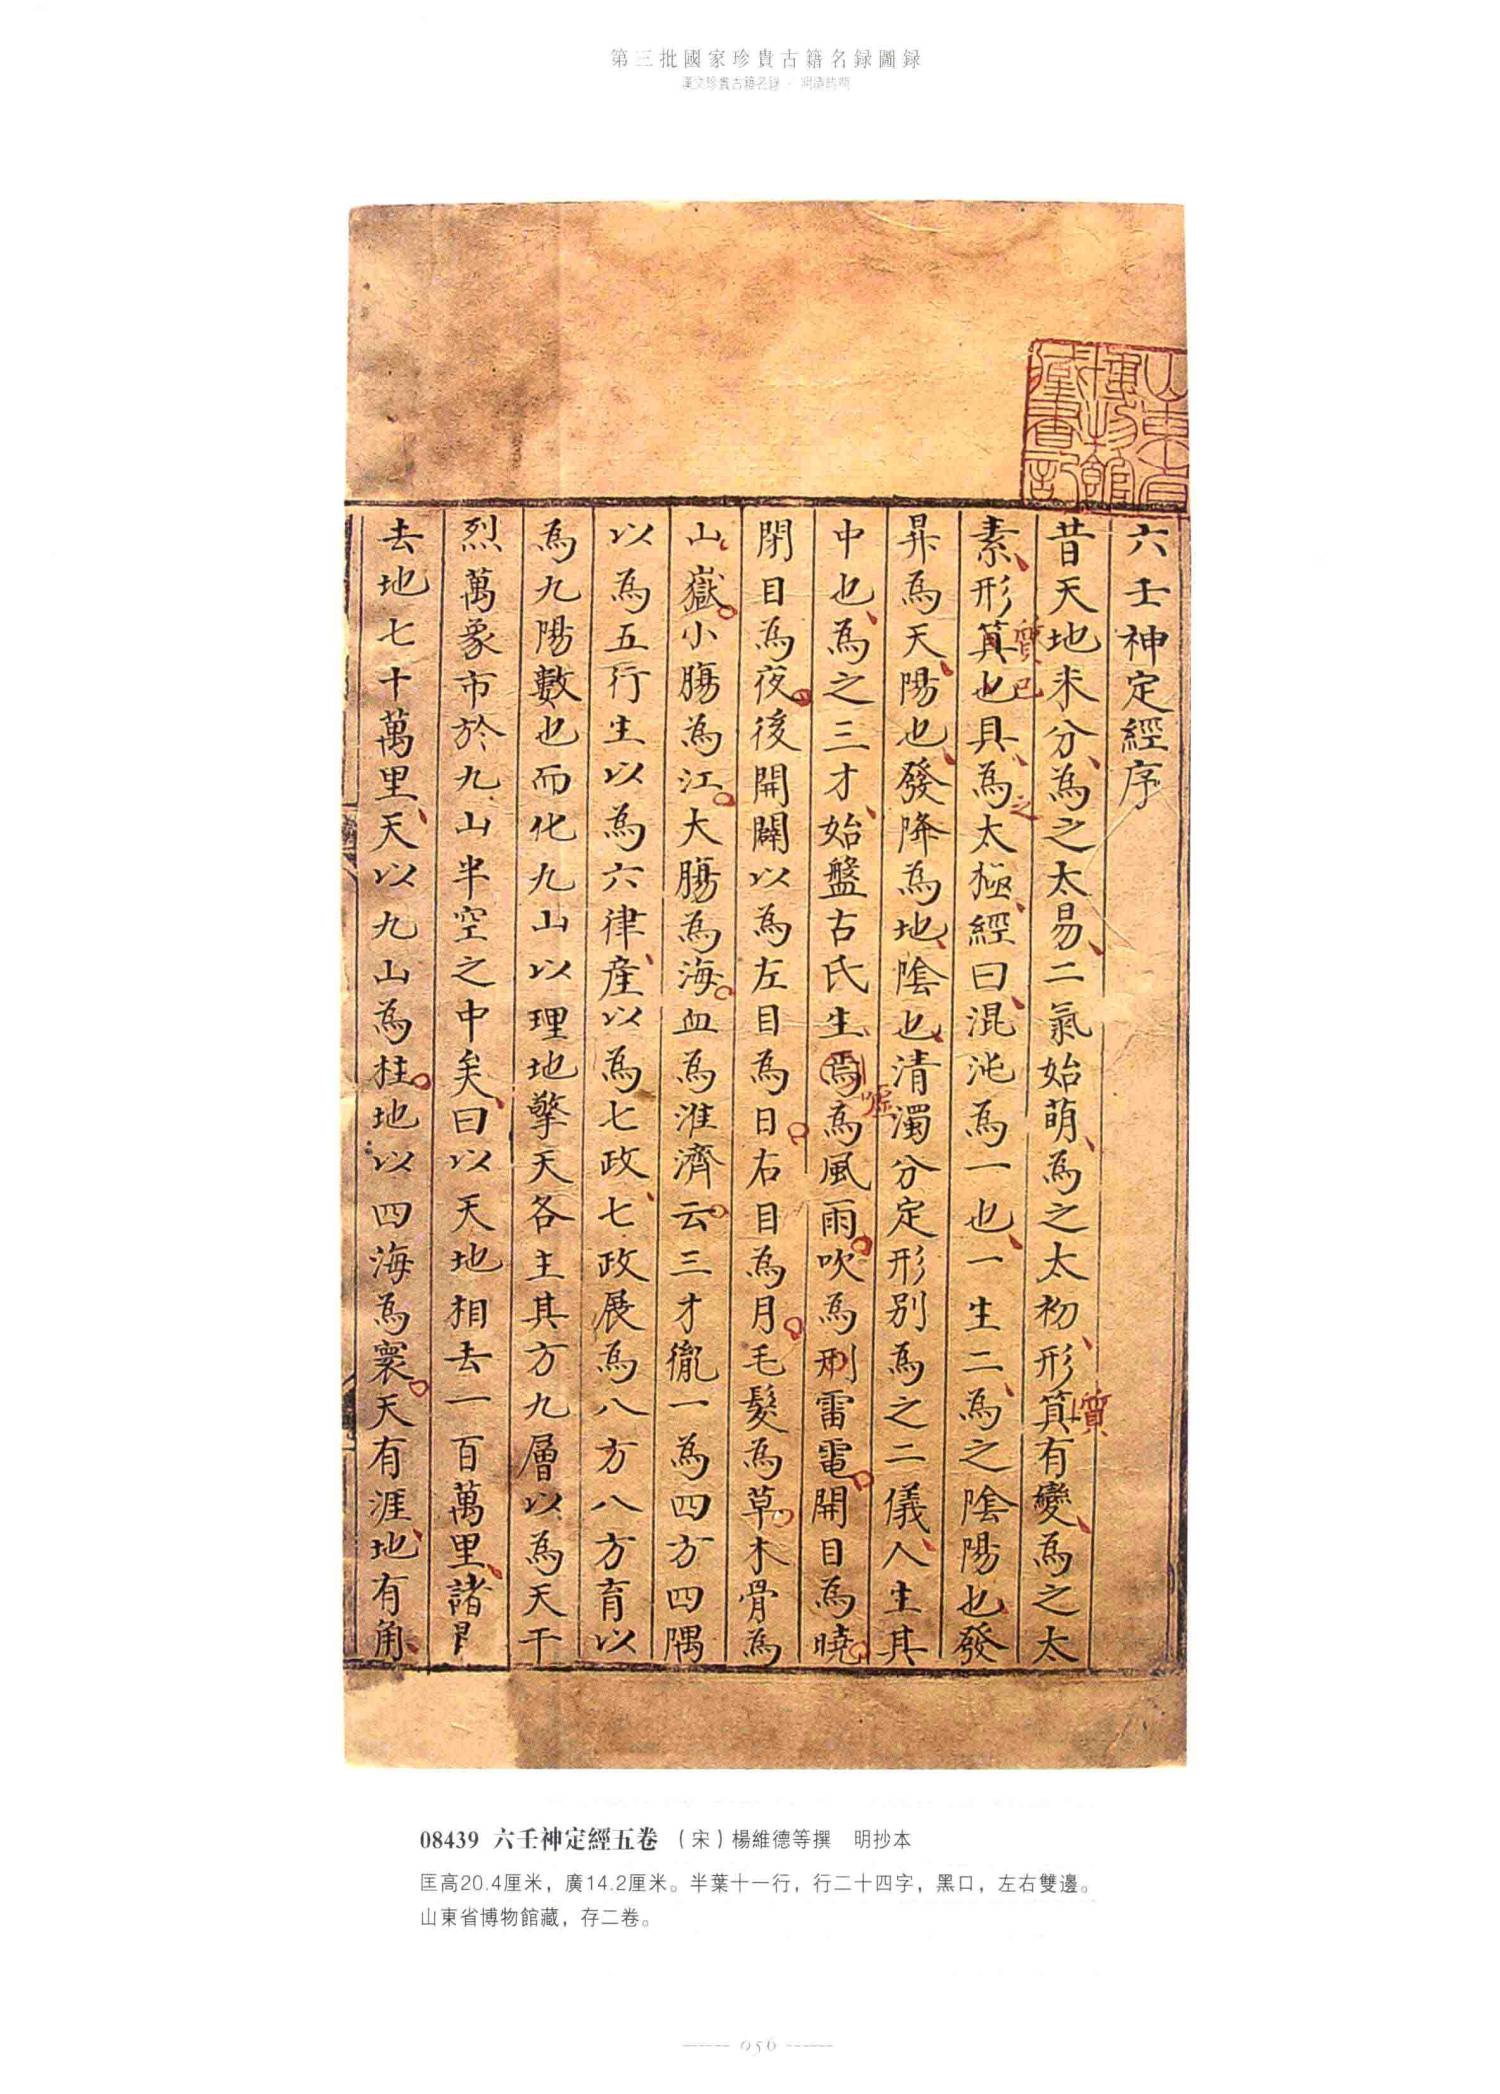 第三批國家珍貴古籍名録圖録
漢文珍貴古籍名録 · 明清時期
山東省
博物館
藏書記
六壬神定經序
昔天地未分為之太易二氣始萌為之太初形箕有變為之太
質
素形箕也具為太極經曰混沌為一也一生二為之陰陽也發
質已
之
昇為天陽也發降為地陰也清濁分定形別為之二儀人生其
中也為之三才始盤古氏生焉為風雨吹為刑雷電開目為曉
噓
閉目為夜後開闢以為左目為日右目為月毛髮為草木骨為
山嶽小腸為江大腸為海血為淮濟云三才胤一為四方四隅
以為五行生以為六律產以為七政七政展為八方八方育以
為九陽數也而化九山以理地擎天各主其方九層以為天干
烈萬象市於九山半空之中矣曰以天地相去一百萬里諸
去地七十萬里天以九山為柱地以四海為寰天有涯地有角
08439 六壬神定經五卷 （宋）楊維德等撰 明抄本
匡高20.4厘米，廣14.2厘米。半葉十一行，行二十四字，黑口，左右雙邊。
山東省博物館藏，存二卷。
056